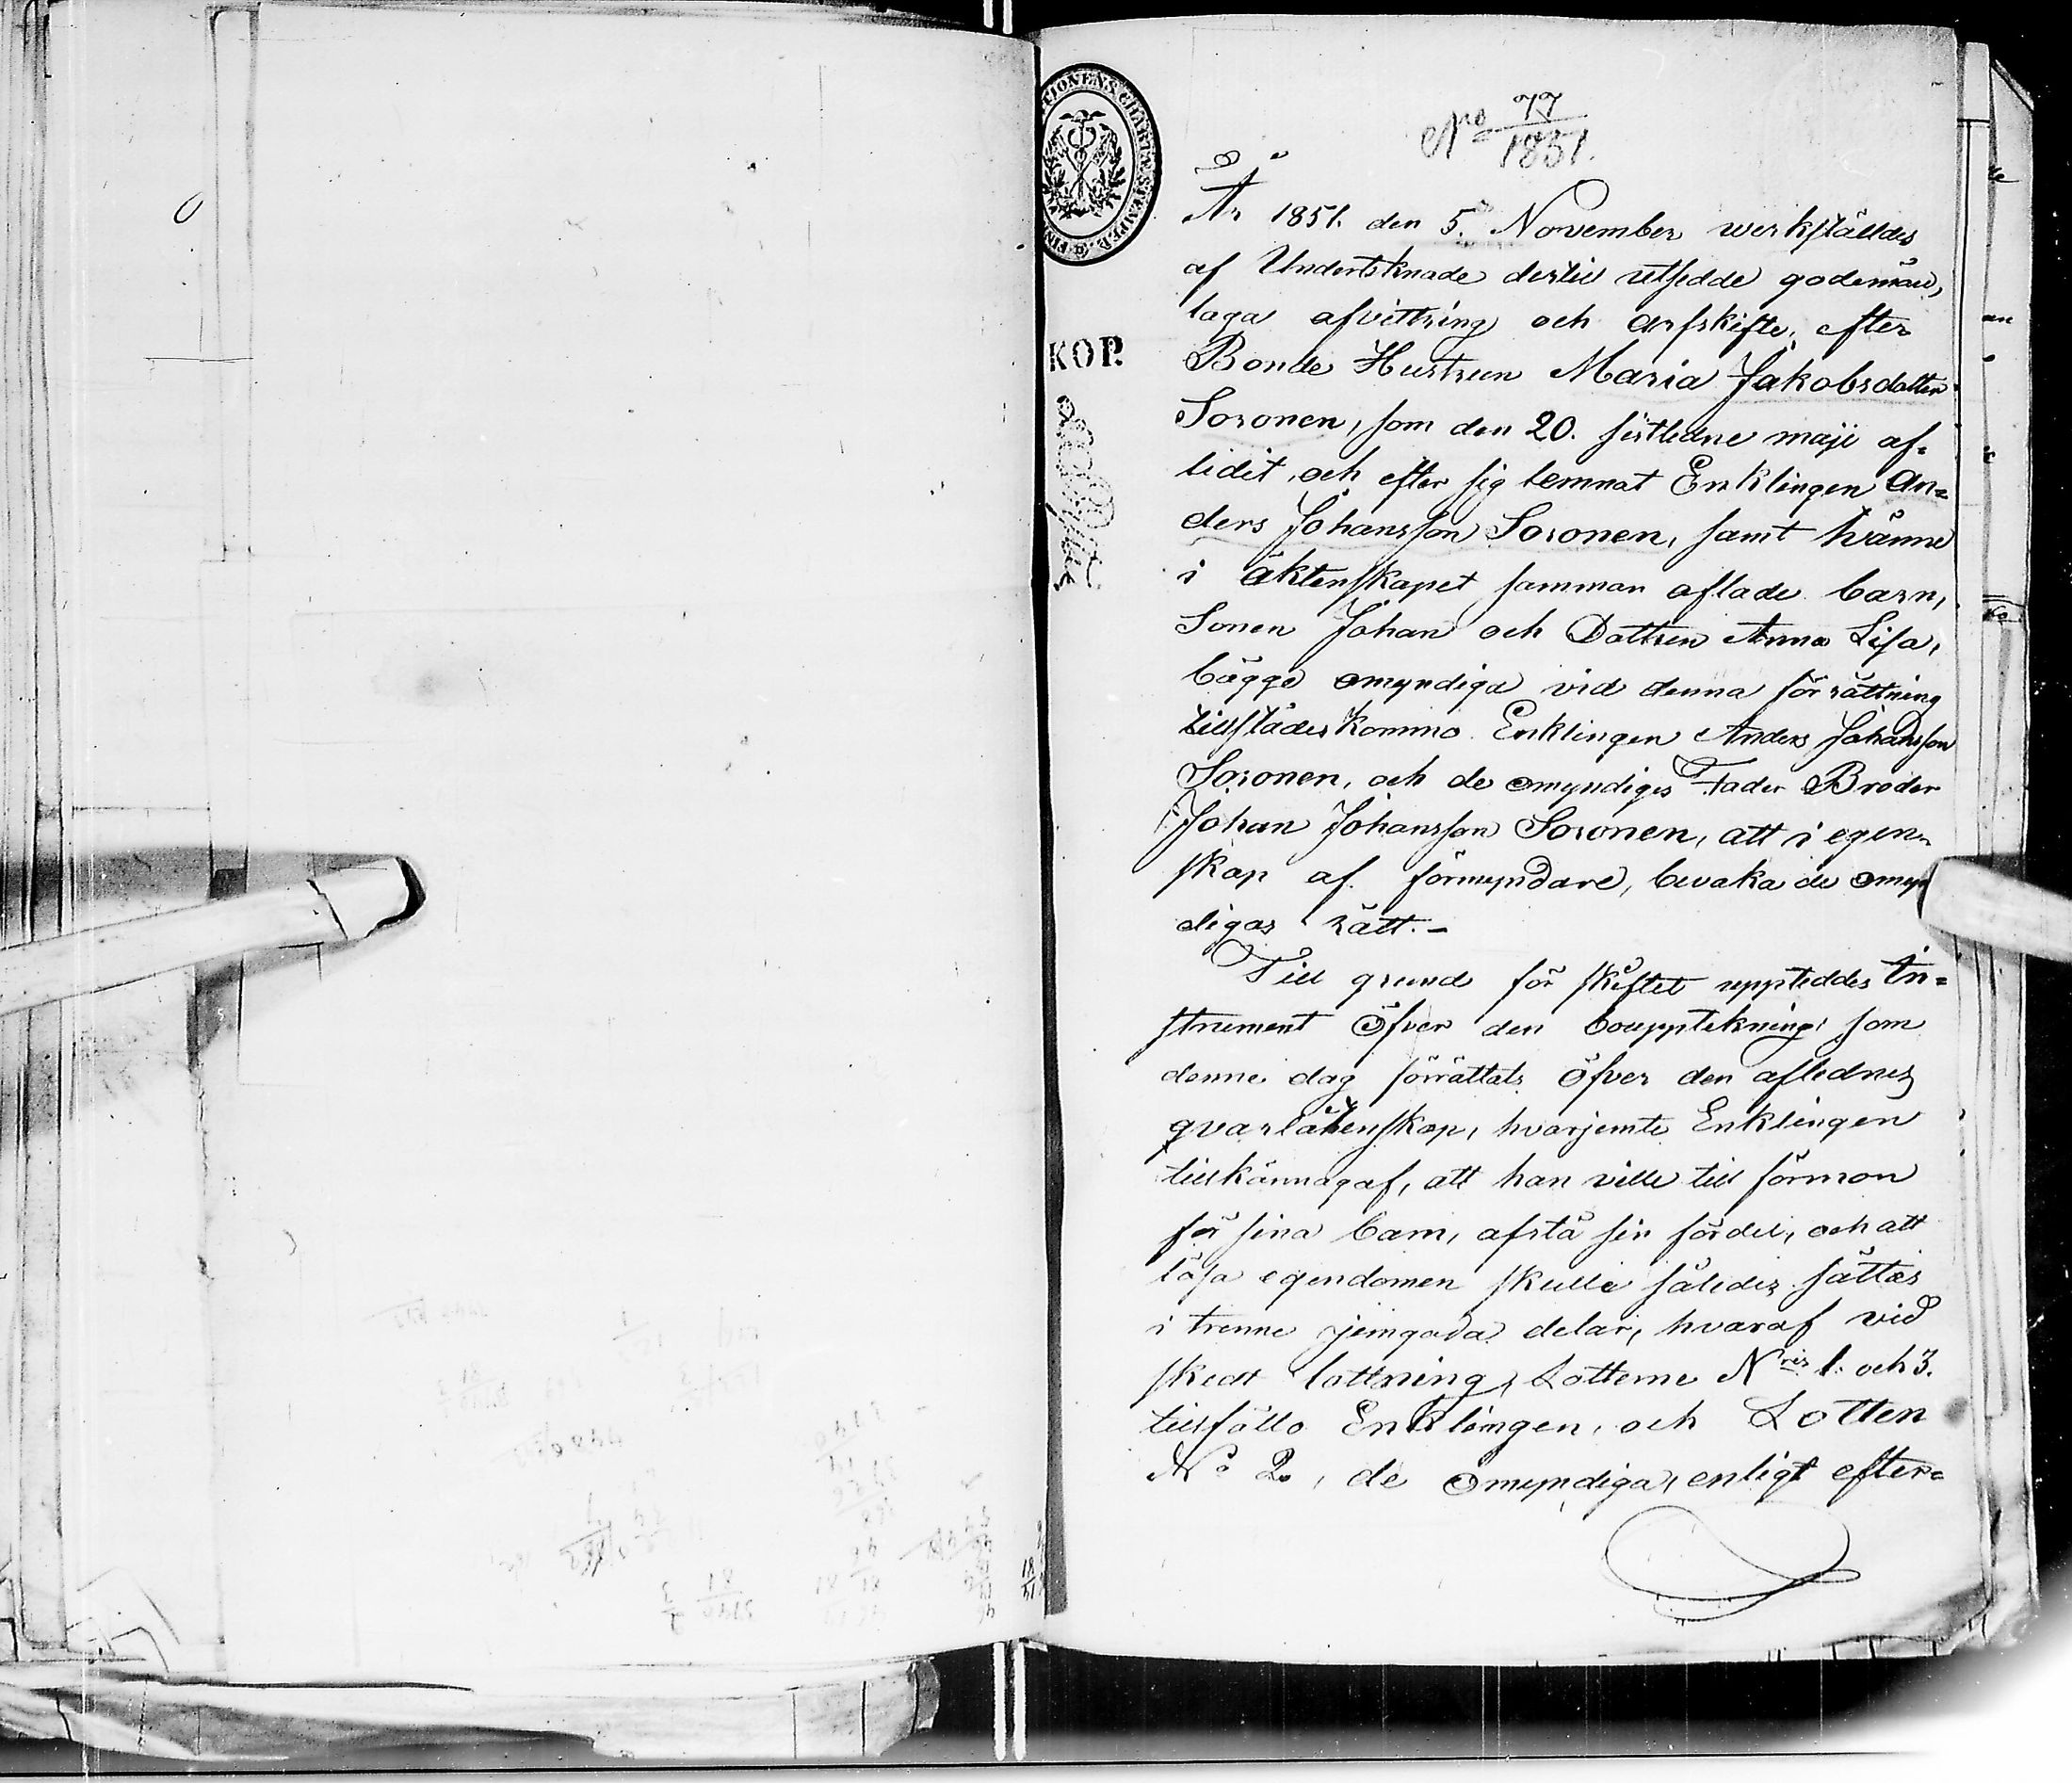 No 77/1851.
År 1851. den 5. November werkställdes
af Underteknade dertill utsedde godemän,
laga afvittring och arfskifte, efter
KOP.
Bonde Hustrun Maria Jakobsdotter
Soronen, som den 20. sistledne maji af-
lidit, och efter sig lemnat Enklingen An=
ders Johansson Soronen, samt hänne
i äktenskapet samman aflade barn,
Sonen Johan och Dottren Anna Lisa,
bägge omyndiga vid denna förrättning
tillstädes kommo Enklingen Anders Johansson
Soronen, och de omyndiges Fader Broder
Johan Johansson Soronen, att i egen-
skap af förmyndare, bevaka de omyn
digas rätt.-
Till grund för skiftet uppteddes In=
strument öfver den bouppteknings som
denne dag förrättats öfver den aflednes
qvarlåtenskap, hvarjemte Enklingen
tillkännagaf, att han ville till förmon
för sina barn, afstå sin fördel, och att
lösa egendomen skulle således sättas
i trenne jemgoda delar, hvaraf vid
skedt lottning, Lotterne Nris 1. och 3.
tillföllo Enklingen, och Lotten
No 2., de omyndiga, enligt efter=